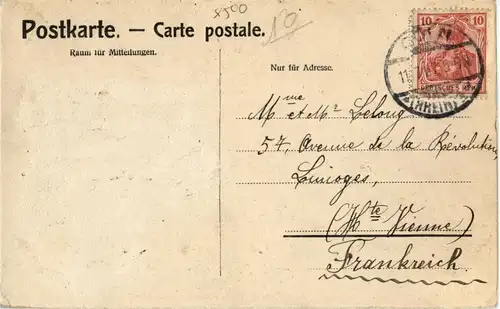 8500
10
Postkarte. — Carte postale.
Raum für Mitteilungen.
Nur für Adresse.
10 10
DEUTSCHES REICH
(RHEIN)
Mme et Mr Lelong
57, Avenue de la Révolution
Limoges,
(Hte Vienne)
Frankreich.